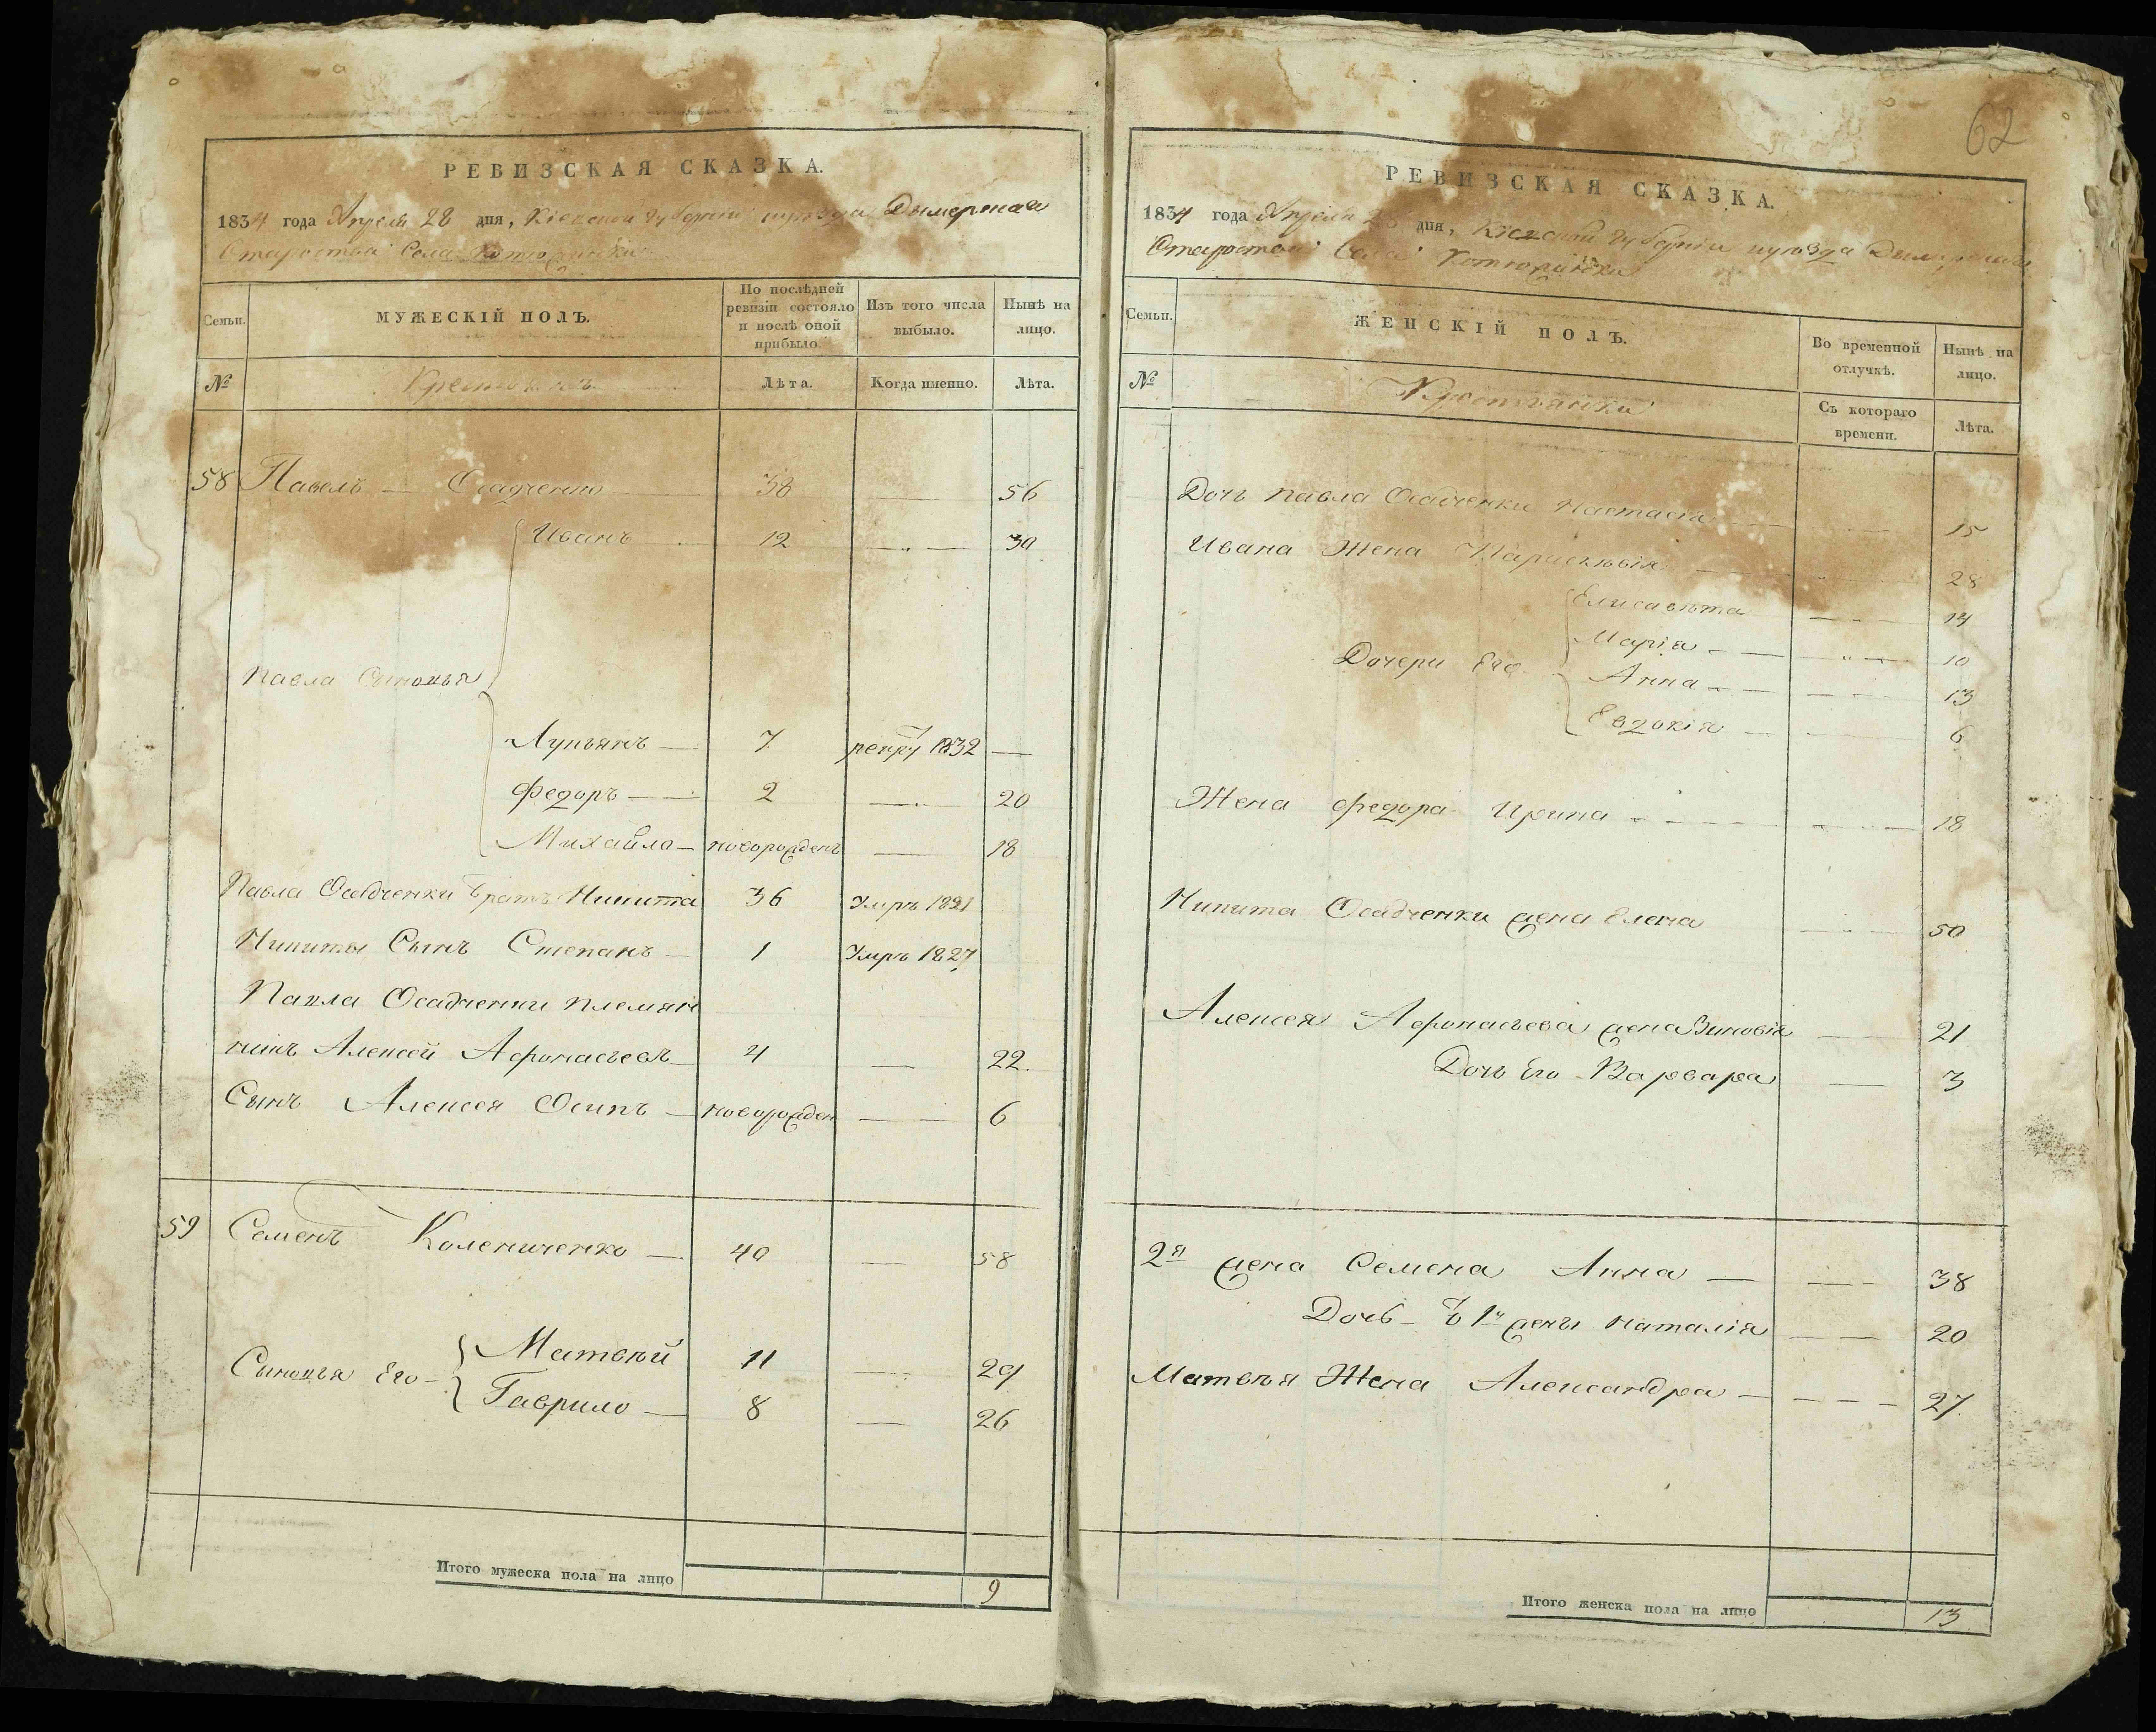 62
РЕВИЗСКАЯ СКАЗКА.
1834 года Апреля 28 дня, Кіевской губерніи и уѣзда Дымерская
Староства Села
Семьи.
МУЖЕСКІЙ ПОЛЪ.
По послѣдней ревизіи состояло и послѣ оной прибыло.
Изъ того числа выбыло.
Нынѣ на лицо.
№
Лѣта.
Когда именно.
Лѣта.
58 Павелъ — Осадченко 38 — 56
Иванъ 12 — „ — 30
Павла Сыновья
Лупьянъ — 7 рекру 1832 —
Федоръ — 2 — 20
Михайло — новорожденъ — 18
Павла Осадченки братъ Никита 36 Умръ 1821
Никиты Сынъ Степанъ — 1 Умръ 1827
Павла Осадченки племян
никъ Алексей Афонасьевъ 4 — 22.
Сынъ Алексея Осипъ — новорожден — 6
59 Семенъ Колениченко — 40 — 58
Сыновья Его —
Матвѣй 11 — 29
Гаврило — 8 — 26
Итого мужеска пола на лицо 9
РЕВИЗСКАЯ СКАЗКА.
1834 года Апреля 28 дня, Кіевской губерніи и уѣзда
Староства Села
Семьи.
ЖЕНСКІЙ ПОЛЪ.
Во временной отлучкѣ.
Нынѣ на лицо.
№
Крестьянки
Съ котораго времени.
Лѣта.
Дочь Павла Осадченки Настасія — 15
Ивана Жена Параскѣвія — 28
Елисавѣта — 14
Марія — „ — 10
Дочери Его
Анна — 13
Евдокія — 6
Жена Федора Ирина — 18
Никита Осадченки жена Елена — 50
Алексея Афонасьева жена Зиновія — 21
Дочь Его Варвара — 3
2я жена Семена Анна — 38
Дочь ъ 1й жены Наталія — 20
Матвѣя Жена Александра — 27.
Итого женска пола на лицо 13